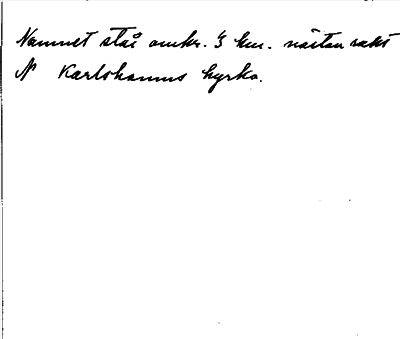 Namnet står omkr. 3 km. nästan rakt
N Karlshamns kyrka.